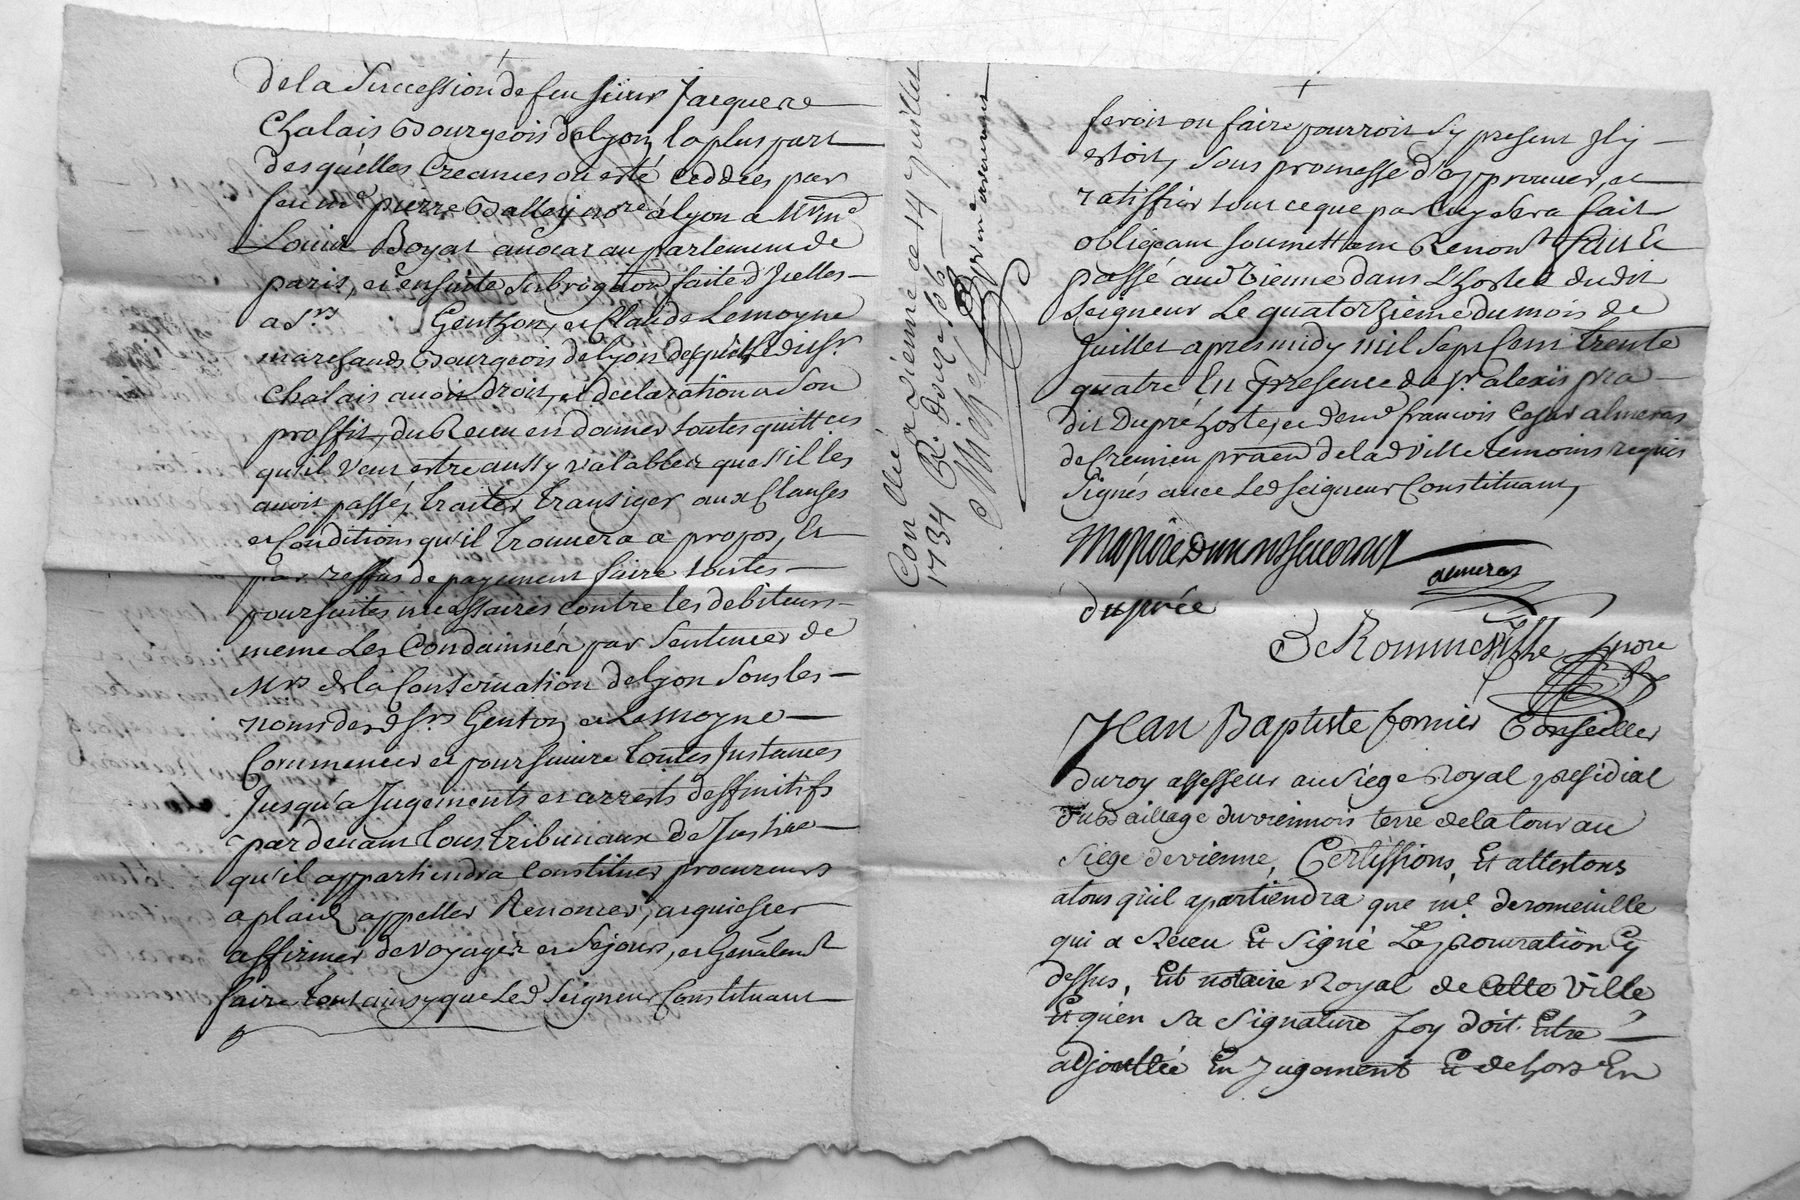 de la Succession de feu sieur Jacque
Chalais Bourgeois de Lyon la plus part
desquelles Creances ou esté ceddées par
feu me pierre Balley nore a Lyon a
Louis Boyat auocat au parlement de
paris, et ensuite subrogation faite d'Icelles
a Srs Genthon, et Claude Lemoyne
marchands Bourgeois de Lyon desquels ledit Sr
Chalais auoit Droit, et declaration a Son
proffit, du Receu en donner toutes quittces
qu'il veut estre aussy valables que s'il les
auoit passé, traiter transiger aux Clauses
et Conditions qu'il trouuera a propos, Et
par reffus de payement faire toutes
poursuites necessaires contre les debiteurs
meme Les Condamner par Sentences de
Mrs de la Conseruation de Lyon Sous les
noms desd Srs Genton et Lemoyne
Commencer et poursuiure toutes Instances
Jusqu'a Jugements et arrests deffinitifs
pardeuant tous tribunaux de Justice
qu'il appartiendra Constituer procureurs
a plaid appeller Renoncer, acquiescer
affirmer de voyages et Sejours, et Generalemt
faire tout ainsy que Led Seigneur Constituant
Con llé a vienne ce 14 Juillet
1734 R. douze sols
feroit ou faire pourroit Sy present Il y
estoit, Sous promesse d'approuuer, et
ratiffier tout ce que par luy Sera fait
obligeant soumettant Renonct fait Et
passé aud Vienne dans L'hostel dudit
Seigneur Le quatorzieme du mois de
Juillet apres midy mil Sept Cent trente
quatre En presence de Sr alexis
dit Dupré hoste, et de me francois Cesar almeras
de Cremieu praen de lad Ville temoins requis
Signés auec Led Seigneur Constituant,
dupré
De Rommeville nore
Jean Baptiste fornier Conseiller
du roy assesseur au Siege Royal presidial
Bailliage du viennois terre de la tour au
Siege de vienne, Certiffions, Et attestons
a tous qu'il apartiendra que me deromeuille
qui a Receu Et Signé La procuration Cy
dessus, Est notaire Royal de Cette Ville
Et qu'en Sa Signature foy doit Estre
adjouttée En Jugement Et dehors En